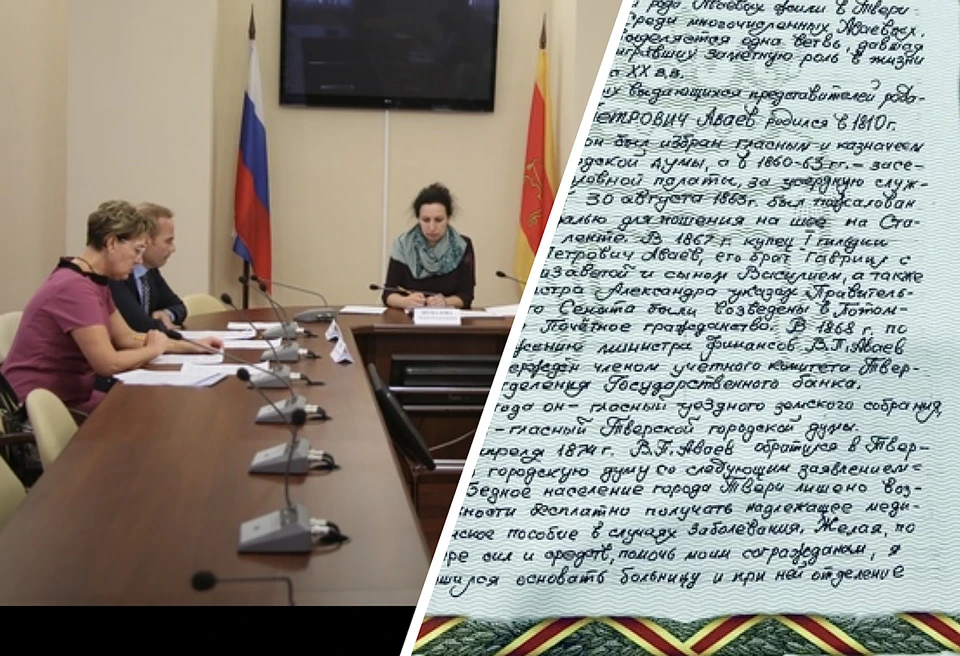 рода Аваевых жили в Твери.
Среди многочисленных Аваевых,
выделяется одна ветвь, давшая
игравших заметную роль в жизни
а XX в.в.
их выдающихся представителей рода-
ЕТРОВИЧ Аваев родился в 1810 г.
он был избран гласным и казначеем
одской думы, а в 1860-63 гг. – засе-
ловной палаты, за усердную служ-
30 августа 1863г. был пожалован
алью для ношения на шее на Ста-
ленте. В 1867 г. купец I гильдии
Петрович Аваев, его брат Гавриил с
изаветой и сыном Василием, а также
стра Александра указом Правитель-
го Сената были возведены в Потом-
Почётное гражданство. В 1868 г. по
жению министра финансов В.П. Аваев
ерждён членом учётного комитета Твер-
тделения Государственного банка.
года он – гласный уездного земского собрания,
– гласный Тверской городской думы.
апреля 1874 г. В.П. Аваев обратился в Твер-
городскую думу со следующим заявлением:
Бедное население города Твери лишено воз-
ности бесплатно получать надлежащее меди-
нское пособие в случаях заболевания. Желая, по
ре сил и средств, помочь моим согражданам, я
шился основать больницу и при ней отделение